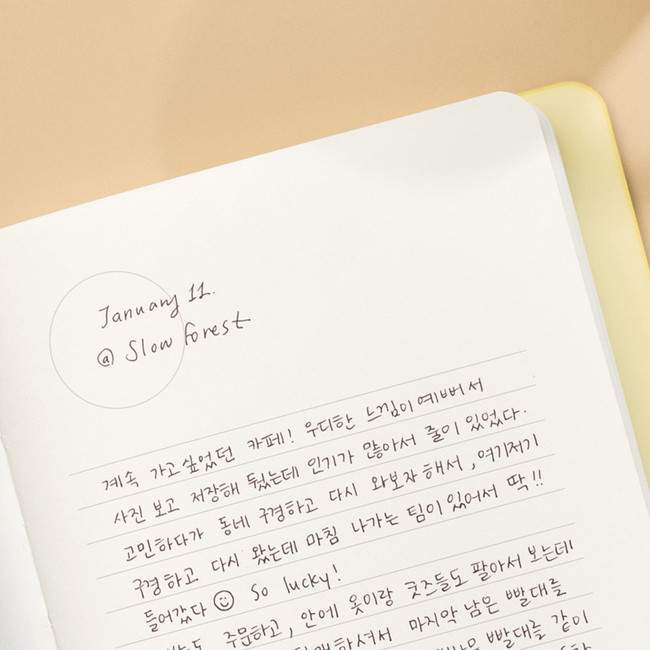 January 11.
@ Slow forest
계속 가고싶었던 카페! 우디한 느낌이 예뻐서
사진 보고 저장해 뒀는데 인기가 많아서 줄이 있었다.
고민하다가 동네 구경하고 다시 와보자 해서, 여기저기
구경하고 다시 왔는데 마침 나가는 팀이 있어서 딱!!
들어갔다 ☺ So lucky!
주문하고, 안에 옷이랑 굿즈들도 팔아서 보는데
마지막 남은 빨대를
빨대를 같이